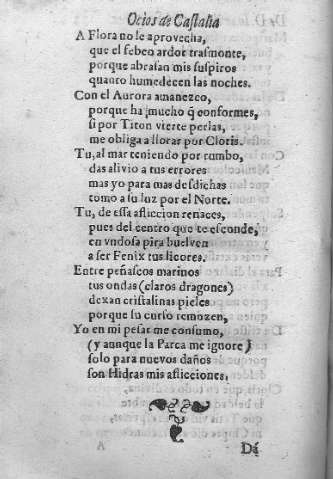 Ocios de Castalia
A Flora no le aprovecha,
que el febeo ardor trasmonte,
porque abrasan mis suspiros
quanto humedecen las noches.
Con el Aurora amanezco,
porque ha mucho q̃ conformes,
si por Titon vierte perlas,
me obliga a llorar por Cloris.
Tu, al mar teniendo por rumbo,
das alivio a tus errores
mas yo para mas desdichas
tomo a su luz por el Norte.
Tu, de essa afliccion renaces,
pues del centro que te esconde,
en vndosa pira buelven
a ser Fenix tus licores.
Entre peñascos marinos
tus ondas (claros dragones)
dexan cristalinas pieles
porque su curso remozen,
Yo en mi pesar me consumo,
(y aunque la Parca me ignore)
solo para nuevos daños
son Hidras mis aflicciones,
Dá